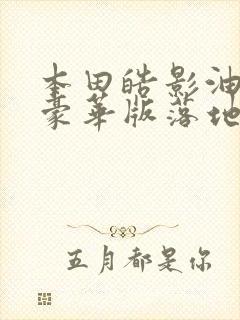 本田皓影油
豪华版落地
五月都是你